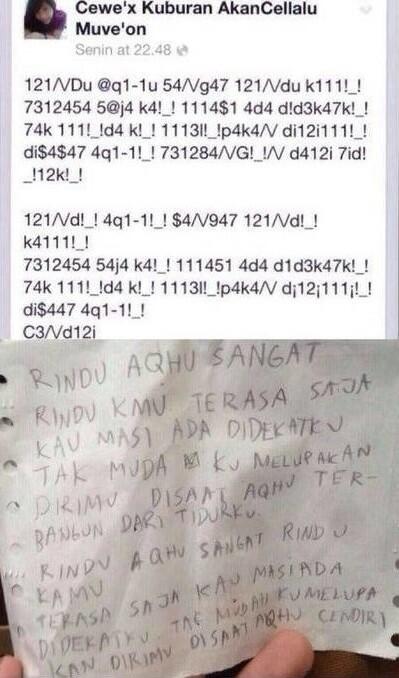 Cewe'x Kuburan AkanCellalu
Muve'on
Senin at 22.48
121/\/Du @q1-1u 54/\/g47 121/\/du k111!_!
7312454 5@j4 k4!_! 1114$1 4d4 d!d3k47k!_!
74k 111!_!d4 k!_! 1113l!_!p4k4/\/ di12i111!_!
di$4$47 4q1-1!_! 731284/\/G!_!/\/ d412i 7id!
_!12k!_!
121/\/d!_! 4q1-1!_! $4/\/947 121/\/d!_!
k4111!_!
7312454 54j4 k4!_! 111451 4d4 d1d3k47k!_!
74k 111!_!d4 k!_! 1113l!_!p4k4/\/ d¡12¡111¡!_!
di$447 4q1-1!_!
C3/\/d12i
RINDU AQHU SANGAT
RINDU KMU TERASA SAJA
KAU MASI ADA DIDEKATKU
TAK MUDA KU MELUPAKAN
DIRIMU DISAAT AQHU TER-
BANGUN DARI TIDURKU.
RINDU AQHU SANGAT RINDU
KAMU
TERASA SAJA KAU MASIADA
DIDEKATKU. TAK MUDAH KUMELUPA
KAN DIRIMU DISAAT AQHU CENDIRI